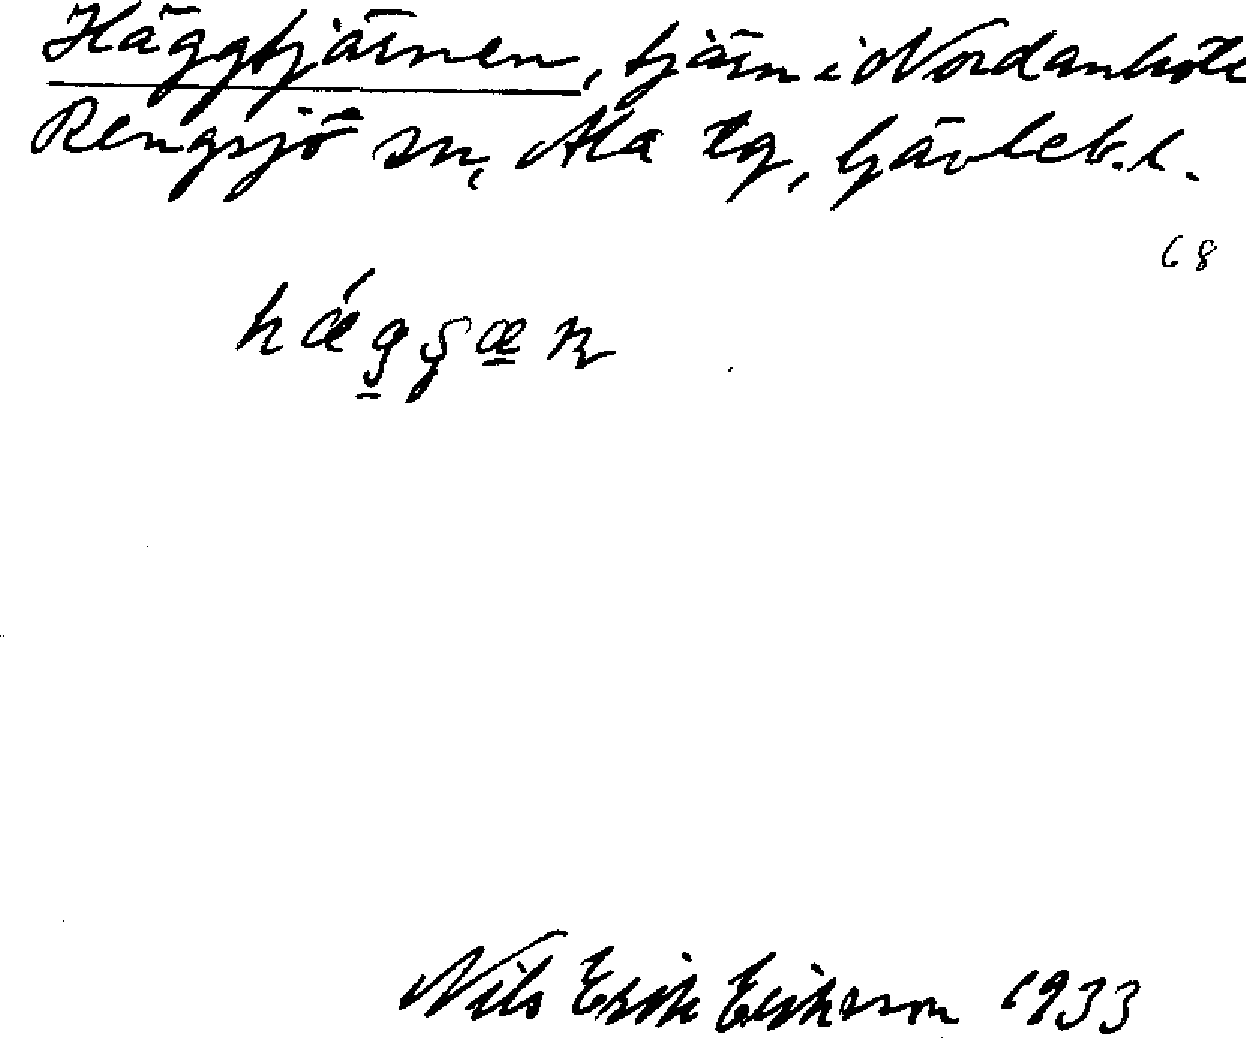 Häggtjärnen, tjärn i Nordanhöle
Rengsjö sn, Ala tg, Gävleb. l.
68
Nils Erik Eriksson 1933